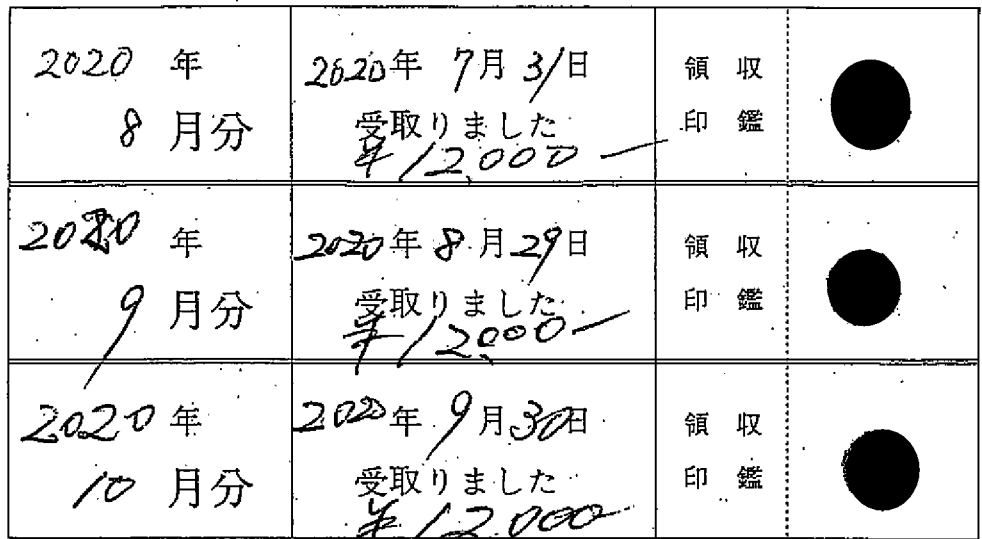 2020 年
8 月分
2020年 7月 31日
受取りました
¥12,000 —
領 収
印 鑑
2020 年
9 月分
2020年 8月 29日
受取りました
¥12,000 —
領 収
印 鑑
2020 年
10 月分
2020年 9月 30日
受取りました
¥12,000
領 収
印 鑑